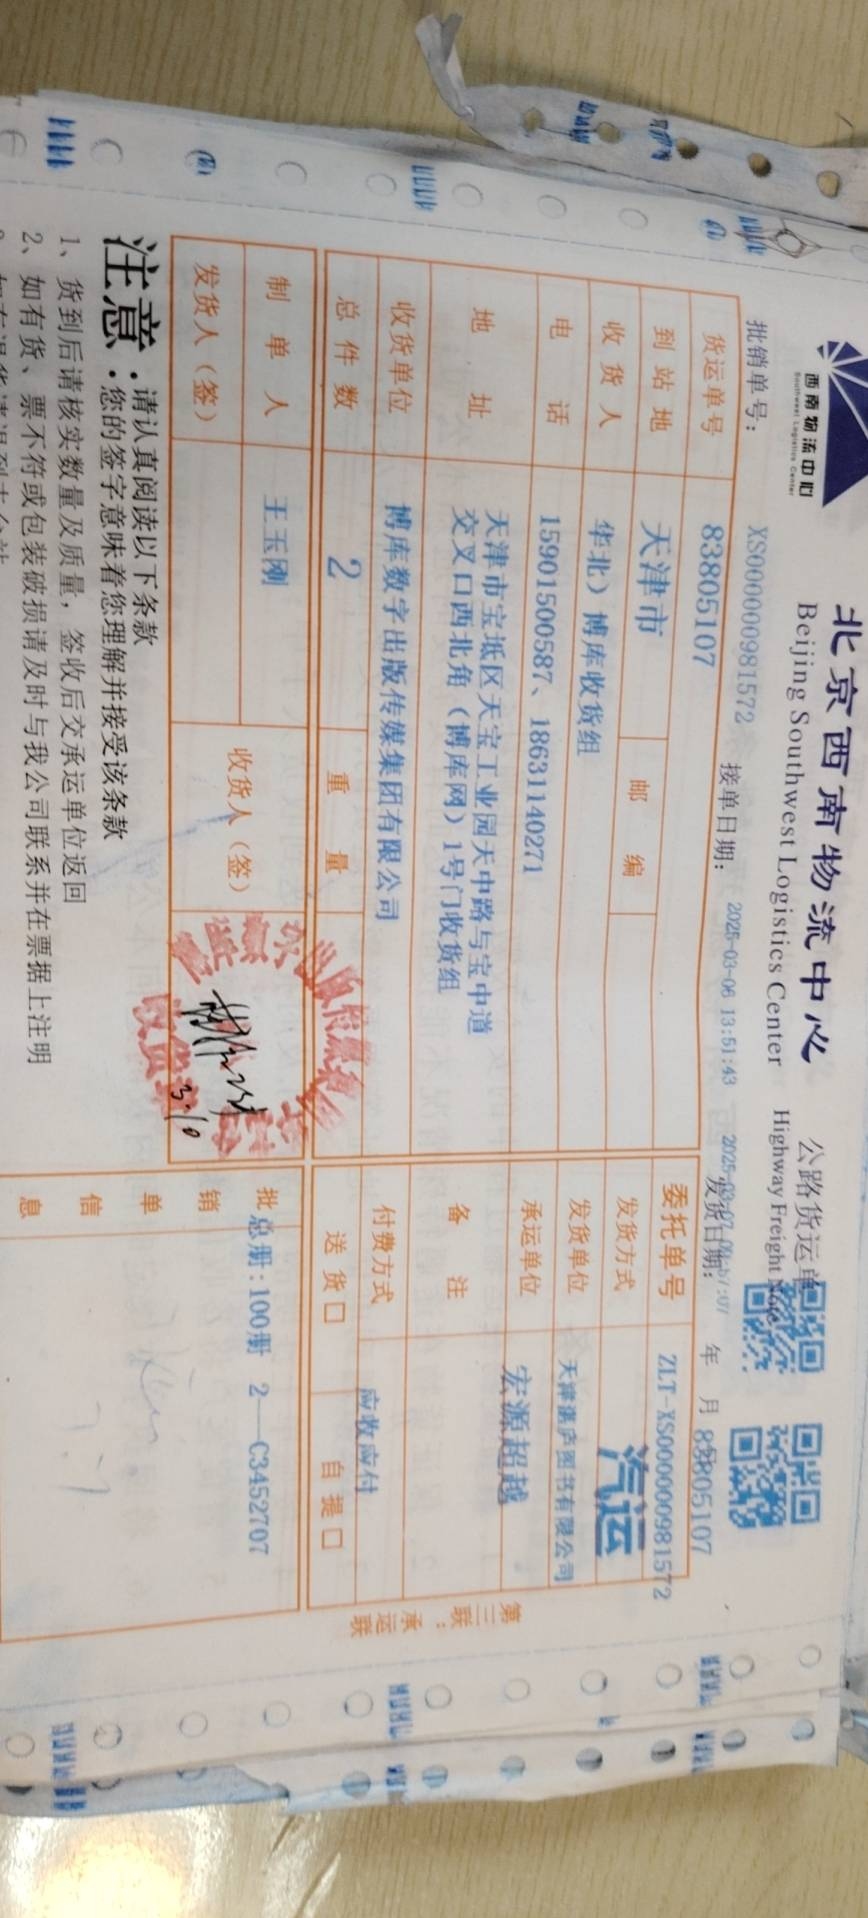 西南物流中心
Southwest Logistics Center
北京西南物流中心 公路货运单
Beijing Southwest Logistics Center Highway Freight Note
批销单号: XS000000981572 接单日期: 2025-03-06 13:51:43 发货日期: 年 月
83805107
货运单号 83805107 委托单号 ZLT-XS000000981572
到站地 天津市 邮编 发货方式 汽运
收货人 华北)博库收货组 发货单位 天津湛庐图书有限公司
电话 15901500587、18631140271 承运单位 宏源超越
地址 天津市宝坻区天宝工业园天中路与宝中道
交叉口西北角(博库网)1号门收货组
备注
收货单位 博库数字出版传媒集团有限公司 付费方式 应收应付
总件数 2 重量 送货口 自提口
制单人 王玉刚 收货人(签)
发货人(签)
3.10
批销单信息 总册:100册 2—C3452707
第三联:承运联
注意: 请认真阅读以下条款
您的签字意味着您理解并接受该条款
1、货到后请核实数量及质量,签收后交承运单位返回
2、如有货、票不符或包装破损请及时与我公司联系并在票据上注明